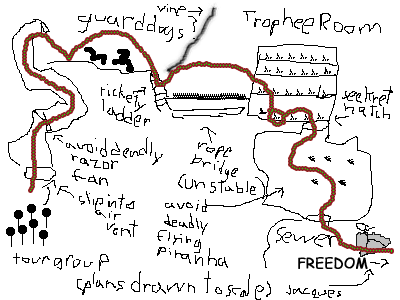 vine→
guarddogs?
TropheeRoom
rickety
ladder
seekret
hatch
avoid deadly
razor
fan
rope
bridge
(unstable)
slip into
air
vent
avoid
deadly
flying
piranha
sewer
FREEDOM→
tour group
(plans drawn to scale)
Jacques